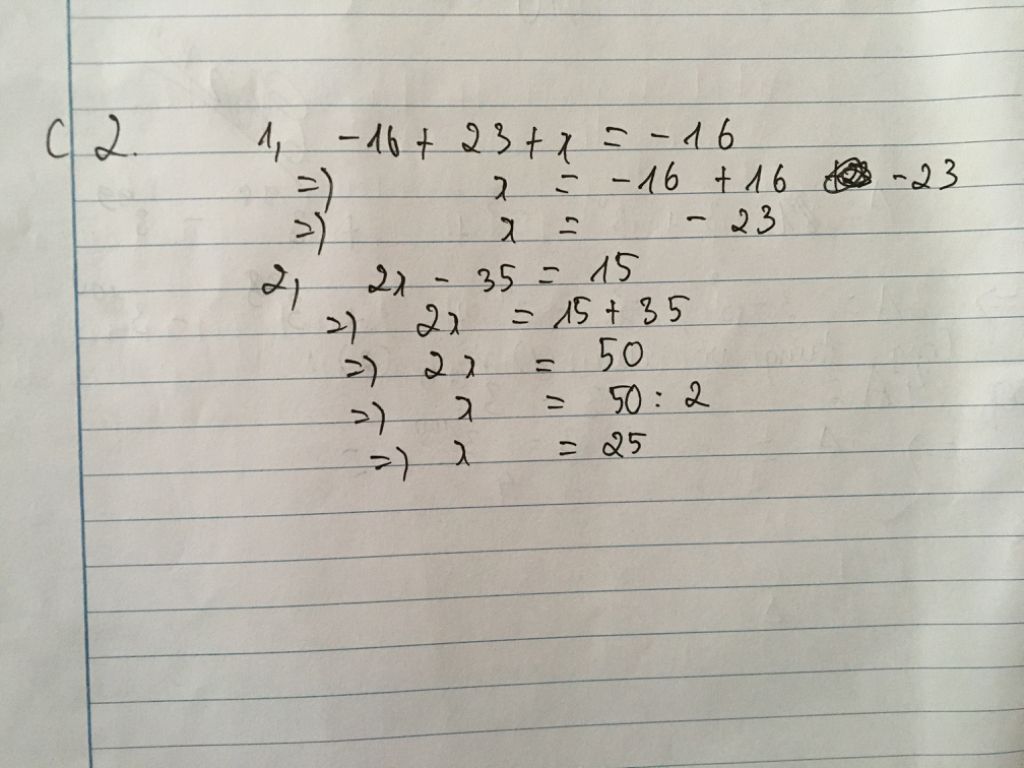 C 2. 1, -16 + 23 + x = -16
=) x = -16 + 16 -23
=) x = - 23
2, 2x - 35 = 15
=) 2x = 15 + 35
=) 2x = 50
=) x = 50 : 2
=) x = 25